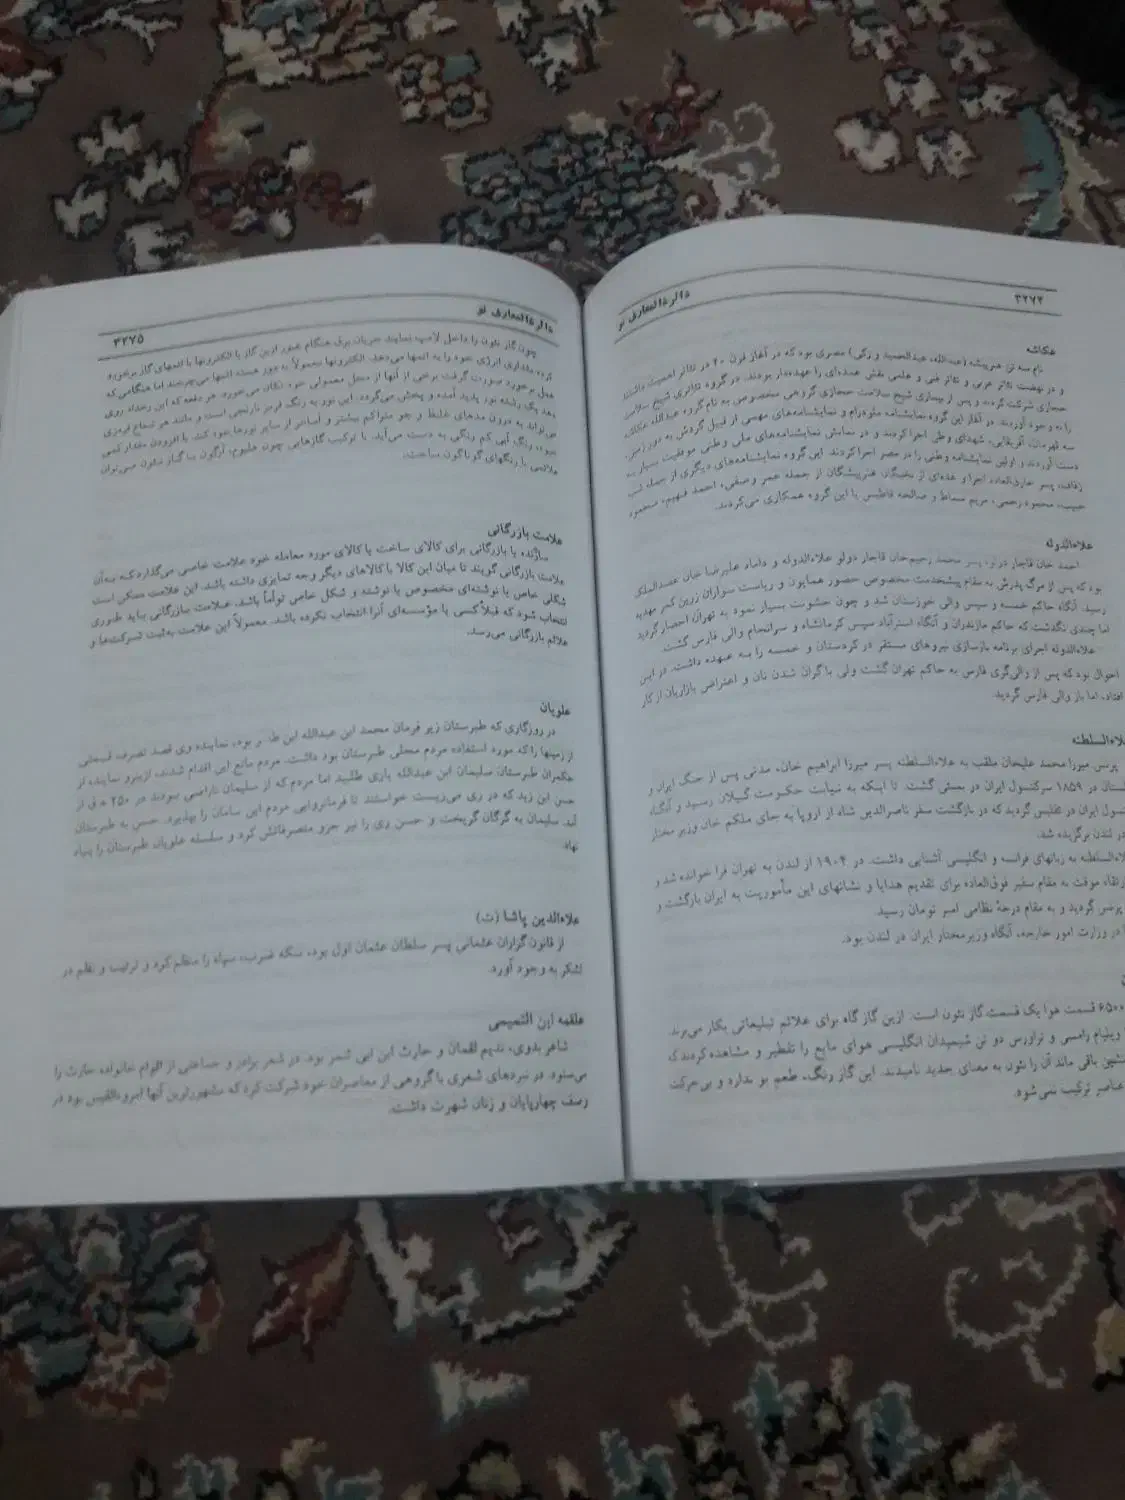 دائرةالمعارف نو
۳۲۷۴
عکاشه
نام سه تن هنرپیشه (عبدالله، عبدالحمید و زکی) مصری بود که در آغاز قرن ۲۰ در تئاتر اهمیت داشتند
و در نهضت تئاتر عربی و تئاتر فنی و علمی نقش عمده‌ای را عهده‌دار بودند. در گروه تئاتری شیخ سلامت
حجازی شرکت کردند و پس از بیماری شیخ سلامت حجازی گروهی مخصوص به نام گروه عبدالله عکاشه
را به وجود آوردند. در آغاز این گروه نمایشنامه ملودرام و نمایشنامه‌های مهمی از قبیل گردش به دور زمین،
سه قهرمان، آفریقایی، شهدای وطن اجرا کردند و در نمایش نمایشنامه‌های ملی وطنی موفقیت بسیار به
دست آوردند و اولین نمایشنامه وطنی را در مصر اجرا کردند. این گروه نمایشنامه‌های دیگری از جمله شب
زفاف، پسر خارق‌العاده اجرا و عده‌ای از نخبگان هنرپیشگان از جمله عمر وصفی، احمد فهیم، محمود
حبیب، محمود رحمی، مریم سماط و صالحه قاطین با این گروه همکاری می‌کردند.
علاءالدوله
احمد خان قاجار دولو، پسر محمد رحیم‌خان قاجار دولو علاءالدوله و داماد علیرضا خان عضدالملک
بود که پس از مرگ پدرش به مقام پیشخدمت مخصوص حضور همایون و ریاست سواران زرین کمر مهدیه
رسید. آنگاه حاکم خمسه و سپس والی خوزستان شد و چون خشونت بسیار نمود به تهران احضار گردید
اما چندی نگذشت که حاکم مازندران و آنگاه استرآباد سپس کرمانشاه و سرانجام والی فارس گشت.
علاءالدوله اجرای برنامه بازسازی نیروهای مستقر در کردستان و خمسه را به عهده داشت. در این
احوال بود که پس از والی‌گری فارس به حاکم تهران گشت ولی با گران شدن نان و اعتراض بازاریان از کار
افتاد، اما باز والی فارس گردید.
علاءالسلطنه
پرنس میرزا محمد علیخان ملقب به علاءالسلطنه پسر میرزا ابراهیم خان، مدتی پس از جنگ ایران و
در ۱۸۵۹ سرکنسول ایران در بمبئی گشت. تا اینکه به نیابت حکومت گیلان رسید و آنگاه
ایران در تفلیس گردید که در بازگشت سفر ناصرالدین شاه از اروپا به جای ملکم خان وزیر مختار
در لندن برگزیده شد.
به زبانهای فرانسه و انگلیسی آشنایی داشت. در ۱۹۰۴ از لندن به تهران فرا خوانده شد و
موقت به مقام سفیر فوق‌العاده برای تقدیم هدایا و نشانهای این مأموریت به ایران بازگشت و
پرنس گردید و به مقام درجهٔ نظامی امیر تومان رسید.
در وزارت امور خارجه، آنگاه وزیرمختار ایران در لندن بود.
۶۵۰۰۰ قسمت هوا یک قسمت گاز نئون است. ازین گاز گاه برای علائم تبلیغاتی بکار می‌برند.
ویلیام رامسی و تراورس دو تن شیمیدان انگلیسی هوای مایع را تقطیر و مشاهده کردند که
باقی ماند آن را نئون به معنای جدید نامیدند. این گاز رنگ، طعم بو ندارد و بی حرکت
عناصر ترکیب نمی‌شود.
دائرةالمعارف نو
۳۲۷۵
چون گاز نئون را داخل لامپ نمایند جریان برق هنگام عبور ازین گاز با الکترونها با اتمهای گاز برخورد
کرده مقداری انرژی خود را به اتمها می‌دهد. الکترونها معمولاً به دور هسته اتمها می‌چرخند اما هنگامی که
عمل برخورد صورت گرفت برخی از آنها از محل معمولی خود تکان می‌خورد. هر دفعه که این رخداد روی
دهد یک رشته نور پدید آمده و پخش می‌گردد. این نور به رنگ قرمز نارنجی است و مانند هر شعاع قرمزی
می‌تواند به درون مه‌های غلیظ و جو متراکم بیشتر و آسانتر از سایر نورها نفوذ کند. با افزودن مقدار کمی
جیوه، رنگ آبی کم رنگی به دست می‌آید. با ترکیب گازهایی چون هلیوم، آرگون با گاز نئون می‌توان
علائمی با رنگهای گوناگون ساخت.
علامت بازرگانی
سازنده یا بازرگانی برای کالای ساخت یا کالای مورد معامله خود علامت خاصی می‌گذارد که به آن
علامت بازرگانی گویند تا میان این کالا با کالاهای دیگر وجه تمایزی داشته باشد. این علامت ممکن است
شکلی خاص یا نوشته‌ای مخصوص یا نوشته و شکل خاص تواماً باشد. علامت بازرگانی باید طوری
انتخاب شود که قبلاً کسی یا مؤسسه‌ای آنرا انتخاب نکرده باشد. معمولاً این علامت به ثبت شرکتها و
علائم بازرگانی می‌رسد.
علویان
در روزگاری که طبرستان زیر فرمان محمد ابن عبدالله ابن بود، نماینده وی قصد تصرف قسمتی
از زمینها را که مورد استفاده مردم محلی طبرستان بود داشت. مردم مانع این اقدام شدند، ازینرو نماینده از
حکمران طبرستان سلیمان ابن عبدالله یاری طلبید اما مردم که از سلیمان ناراضی بودند در ۲۵۰ ه‍ ق از
حسن ابن زید که در ری می‌زیست خواستند تا فرمانروایی مردم این سامان را بپذیرد. حسن به طبرستان
آمد. سلیمان به گرگان گریخت و حسن ری را نیز جزو متصرفاتش کرد و سلسله علویان طبرستان را بنیاد
نهاد.
علاءالدین پاشا (ت)
از قانون‌گزاران عثمانی پسر سلطان عثمان اول بود، سکه ضرب، سپاه را منظم کرد و ترتیب و نظم در
لشکر به وجود آورد.
علقمه ابن التمیمی
شاعر بدوی، ندیم لقمان و حارث ابن ابی شمر بود. در شعر برادر و جماعتی از اقوام خانواده حارث را
می‌ستود. در نبردهای شعری با گروهی از معاصران خود شرکت کرد که مشهورترین آنها امروءالقیس بود در
وصف چهارپایان و زنان شهرت داشت.